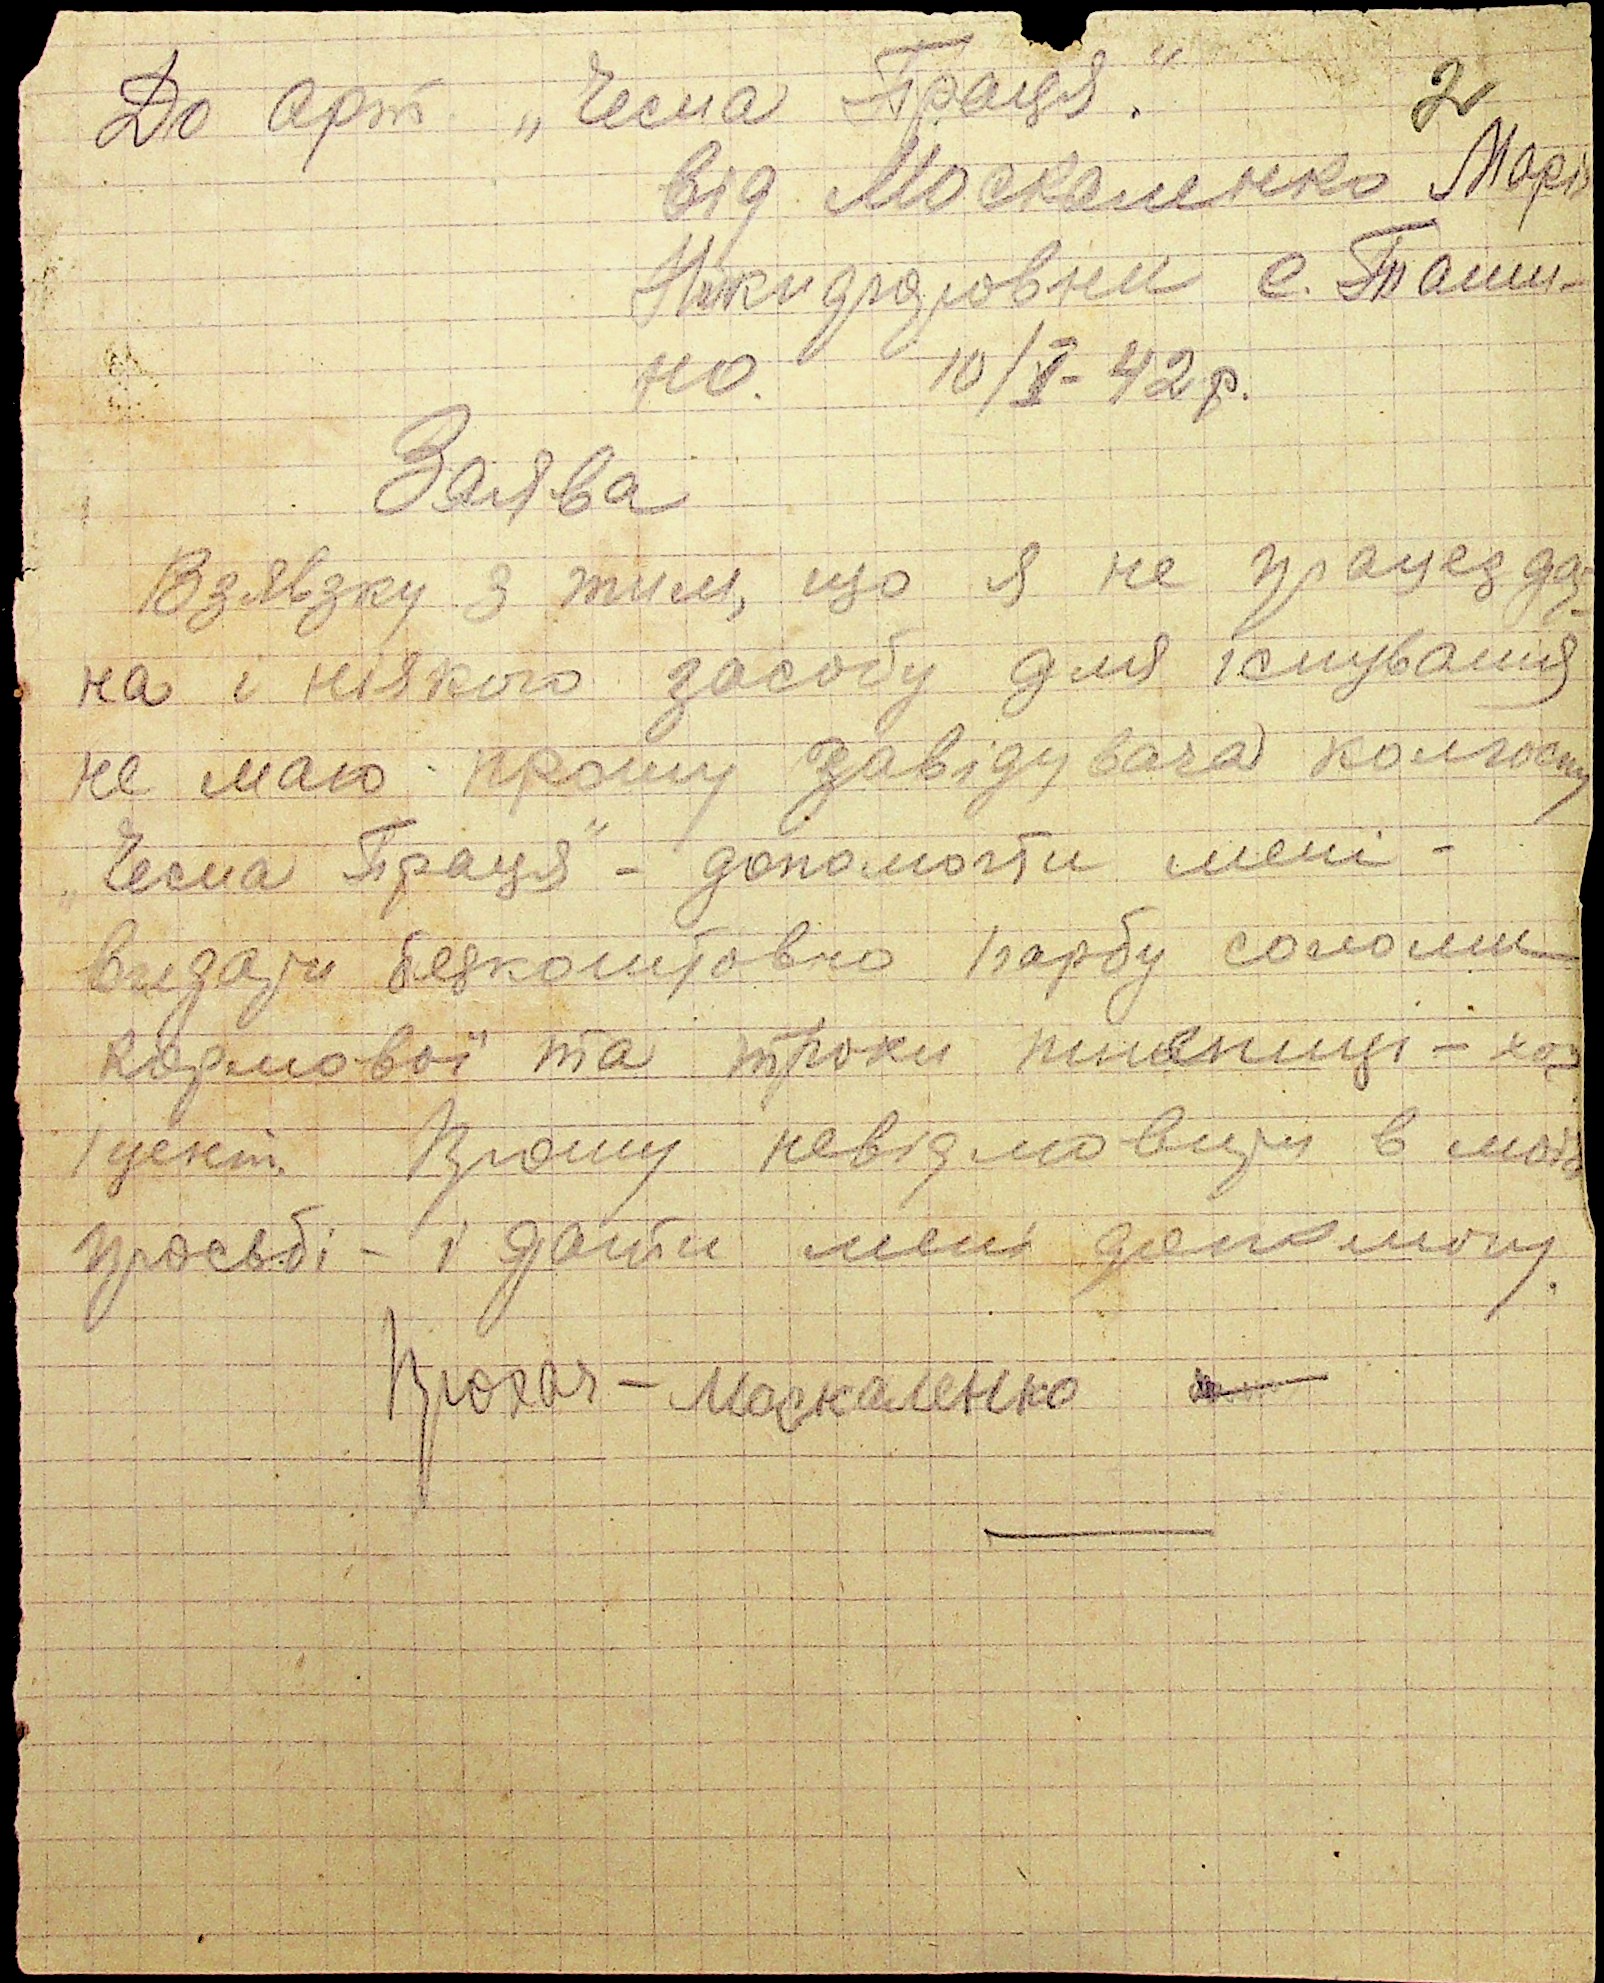 До арт. „Чесна Праця."
2
від Москаленко Марії
Никидровни с. Таши-
но. 10/V-42 р.
Заява
Взявзку з тим, що я не працезда-
на і ніякого засобу для існування
не маю прошу завідувача колгоспу
„Чесна Праця" - допомогти мені -
видати безкоштовно 1 гарбу соломи
кормової та трохи пшениці - хоч
1 цент. Прошу невідмовити в моїй
просьбі - і дати мені допомогу.
Прохач - Москаленко